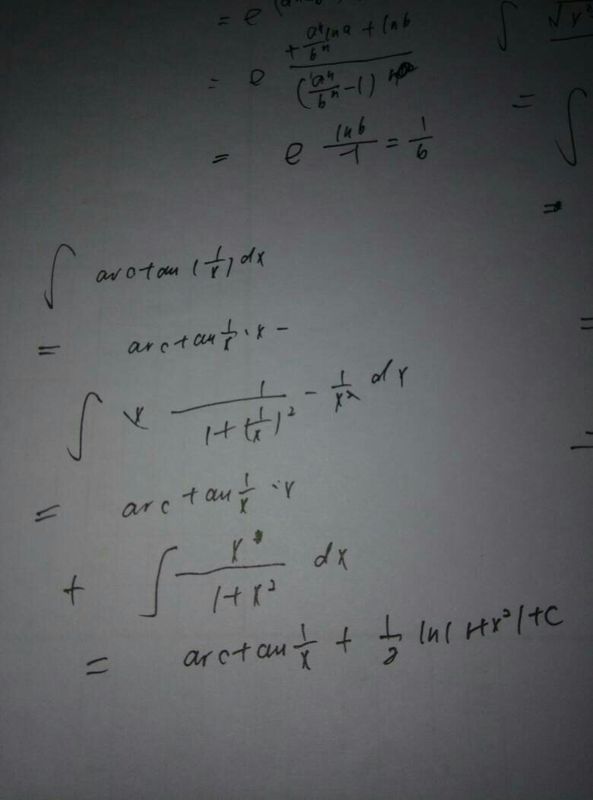 = e
= e (+ a^n/b^n ln a + ln b) / ((a^n/b^n - 1))
= e ln b / -1 = 1/b
∫ arctan (1/x) dx
= arctan 1/x · x -
∫ x 1/(1+(1/x)^2) - 1/x^2 dx
= arctan 1/x · x
+ ∫ x/(1+x^2) dx
= arctan 1/x + 1/2 ln(1+x^2)+C